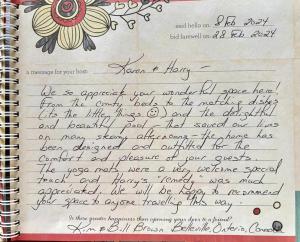 said hello on 8 Feb 2024
bid farewell on 28 Feb 2024
a message for your host:
Karen & Harry -
We so appreciate your wonderful space here!
From the comfy beds to the matching dishes
(its the little things ☺) and the delightful
and beautiful pool - that saved our lives
on many steamy afternoons - the home has
been designed and outfitted for the
comfort and pleasure of your guests.
The yoga mats were a very welcome special
touch and Harry's "remedy" was much
appreciated. We will be happy to recommend
your space to anyone travelling this way.
Is there greater happiness than opening your door to a friend?
Kim & Bill Brown Belleville, Ontario, Canada